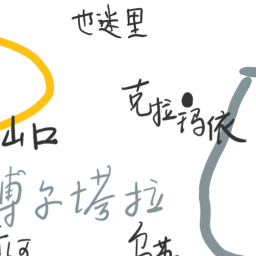 也迷里
克拉玛依
山口
博尔塔拉
河
乌苏